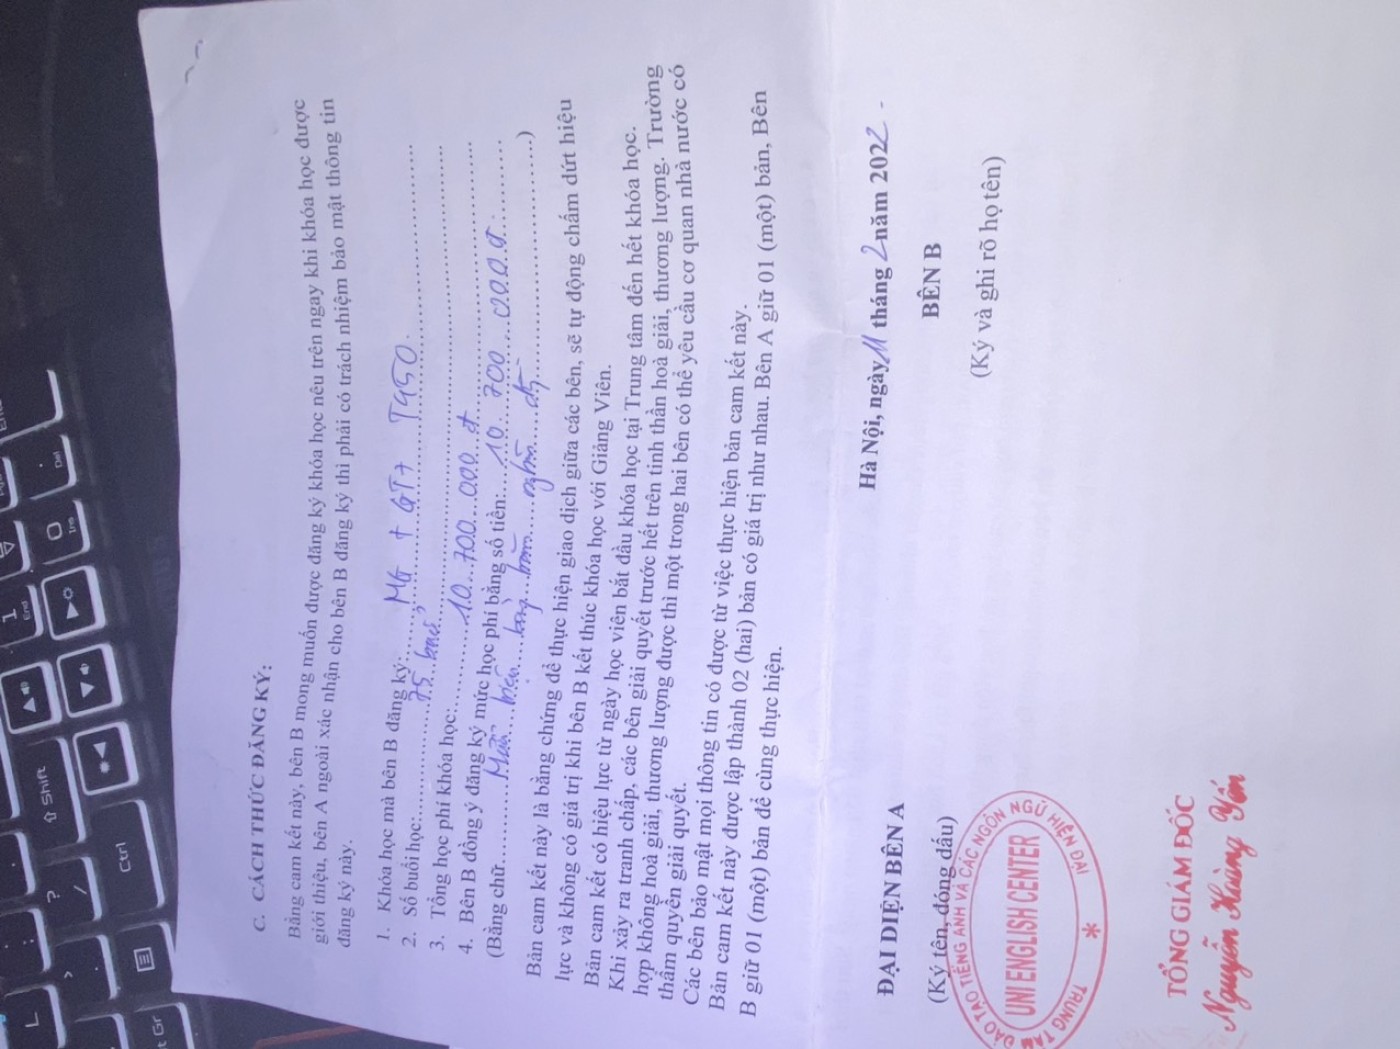 C. CÁCH THỨC ĐĂNG KÝ:
Bằng cam kết này, bên B mong muốn được đăng ký khóa học nêu trên ngay khi khóa học được
giới thiệu, bên A ngoài xác nhận cho bên B đăng ký thì phải có trách nhiệm bảo mật thông tin
đăng ký này.
1. Khóa học mà bên B đăng ký: MG + GT + T450
2. Số buổi học: 75 buổi
3. Tổng học phí khóa học: 10.700.000 đ
4. Bên B đồng ý đăng ký mức học phí bằng số tiền: 10.700.000đ
(Bằng chữ Mười triệu bảy trăm nghìn đồng)
Bản cam kết này là bằng chứng để thực hiện giao dịch giữa các bên, sẽ tự động chấm dứt hiệu
lực và không có giá trị khi bên B kết thúc khóa học với Giảng Viên.
Bản cam kết có hiệu lực từ ngày học viên bắt đầu khóa học tại Trung tâm đến hết khóa học.
Khi xảy ra tranh chấp, các bên giải quyết trước hết trên tinh thần hoà giải, thương lượng. Trường
hợp không hoà giải, thương lượng được thì một trong hai bên có thể yêu cầu cơ quan nhà nước có
thẩm quyền giải quyết.
Các bên bảo mật mọi thông tin có được từ việc thực hiện bản cam kết này.
Bản cam kết này được lập thành 02 (hai) bản có giá trị như nhau. Bên A giữ 01 (một) bản, Bên
B giữ 01 (một) bản để cùng thực hiện.
Hà Nội, ngày 11 tháng 2 năm 2022
ĐẠI DIỆN BÊN A
BÊN B
(Ký tên, đóng dấu)
(Ký và ghi rõ họ tên)
TRUNG TÂM ĐÀO TẠO TIẾNG ANH VÀ CÁC NGÔN NGỮ HIỆN ĐẠI
UNI ENGLISH CENTER
TỔNG GIÁM ĐỐC
Nguyễn Hoàng Yến
L
:
;
>
.
?
/
Shift
Ctrl
t Gr
1
End
0
Ins
.
Del